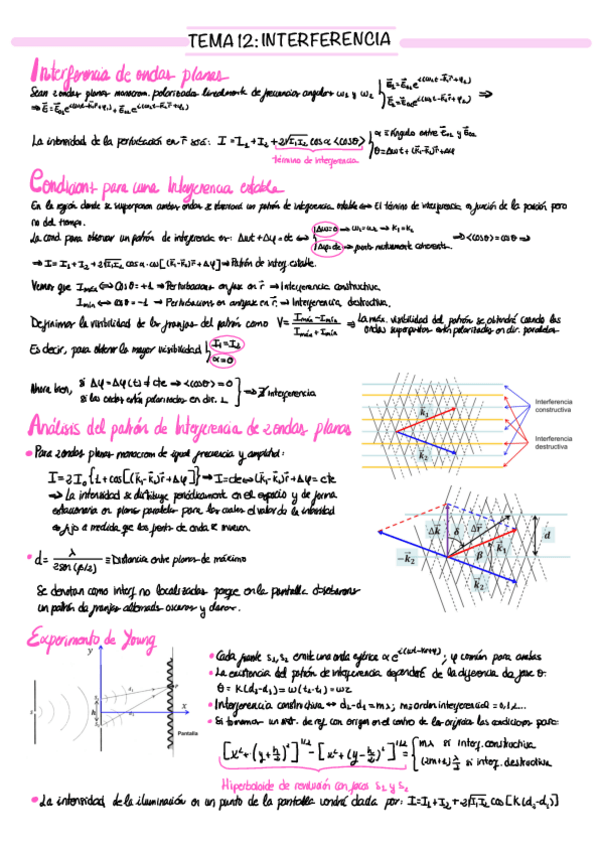 TEMA 12: INTERFERENCIA
Interferencia de ondas planas
Sean 2 ondas planas monocrom. polarizadas linealmente de frecuencias angulares ω₁ y ω₂
La intensidad de la perturbación en r⃗ será: I = I₁ + I₂ + 2√I₁I₂ cosα <cosθ> { α ≡ Ángulo entre E⃗₀₁ y E⃗₀₂
θ = Δωt + (k⃗₁-k⃗₂)r⃗ + Δφ
término de interferencia
Condiciones para una Interferencia estable
En la región donde se superponen ambas ondas se observará un patrón de interferencia estable ↔ El término de interferencia es función de la posición pero
no del tiempo.
La cond. para observar un patrón de interferencia es: Δωt + Δφ = cte ↔ { Δω=0 → ω₁=ω₂ → k₁=k₂
Δφ=cte → mutuamente coherentes.
⇒ <cosθ> = cosθ ⇒
⇒ I = I₁ + I₂ + 2√I₁I₂ cosα · cos[(k⃗₁-k⃗₂)r⃗ + Δφ] → Patrón de interf. estable.
Vemos que Imáx ⟺ cosθ = +1 ⇒ Perturbaciones en fase en r⃗ → Interferencia constructiva.
Imín ⟺ cosθ = -1 ⇒ Perturbaciones en antifase en r⃗ → Interferencia destructiva.
Definimos la visibilidad de las franjas del patrón como V = (Imáx - Imín)/(Imáx + Imín) ⇒ La máx. visibilidad del patrón se obtendrá cuando las
ondas superpuestas estén polarizadas en dir. paralelas
Es decir, para obtener la mayor visibilidad { I₁ = I₂
α = 0
Ahora bien, si Δφ = Δφ(t) ≠ cte ⇒ <cosθ> = 0
si las ondas están polarizadas en dir. ⊥ } ⇒ ∄ interferencia
Interferencia
constructiva
Interferencia
destructiva
k⃗₁
k⃗₂
Análisis del patrón de Interferencia de 2 ondas planas
• Para 2 ondas planas monocrom de igual frecuencia y amplitud:
I = 2I₀{1 + cos[(k⃗₁-k⃗₂)r⃗ + Δφ]} ⇒ I = cte ⟺ (k⃗₁-k⃗₂)r⃗ + Δφ = cte
⇒ La intensidad se distribuye periódicamente en el espacio y de forma
estacionaria en planos paralelos para los cuales el valor de la intensidad
es fijo a medida que los frentes de onda se mueven.
Δk⃗
δ
Δr⃗
d⃗
β
k⃗₁
-k⃗₂
k⃗₂
• d = λ / 2sen(β/2) ≡ Distancia entre planos de máximo
Se denotan como interf. no localizadas porque en la pantalla observamos
un patrón de franjas alternado oscuras y claras.
Experimento de Young
y
x
Pantalla
• Cada fuente s₁, s₂ emite una onda esférica ; φ común para ambas
• La existencia del patrón de interferencia dependerá de la diferencia de fase θ:
θ = K(d₂-d₁) = ω(t₂-t₁) = ωτ
• Interferencia constructiva ↔ d₂-d₁ = mλ; m≡orden interferencial = 0,1,2...
• Si tomamos un sist. de ref con origen en el centro de las rendijas las condiciones para:
[x² + (y+h/2)²]^1/2 - [x² + (y-h/2)²]^1/2 = { mλ si interf. constructiva
(2m+1)λ/2 si interf. destructiva
Hiperboloide de revolución con focos s₁ y s₂
• La intensidad de la iluminación en un punto de la pantalla vendrá dada por: I = I₁ + I₂ + 2√I₁I₂ cos[K(d₂-d₁)]